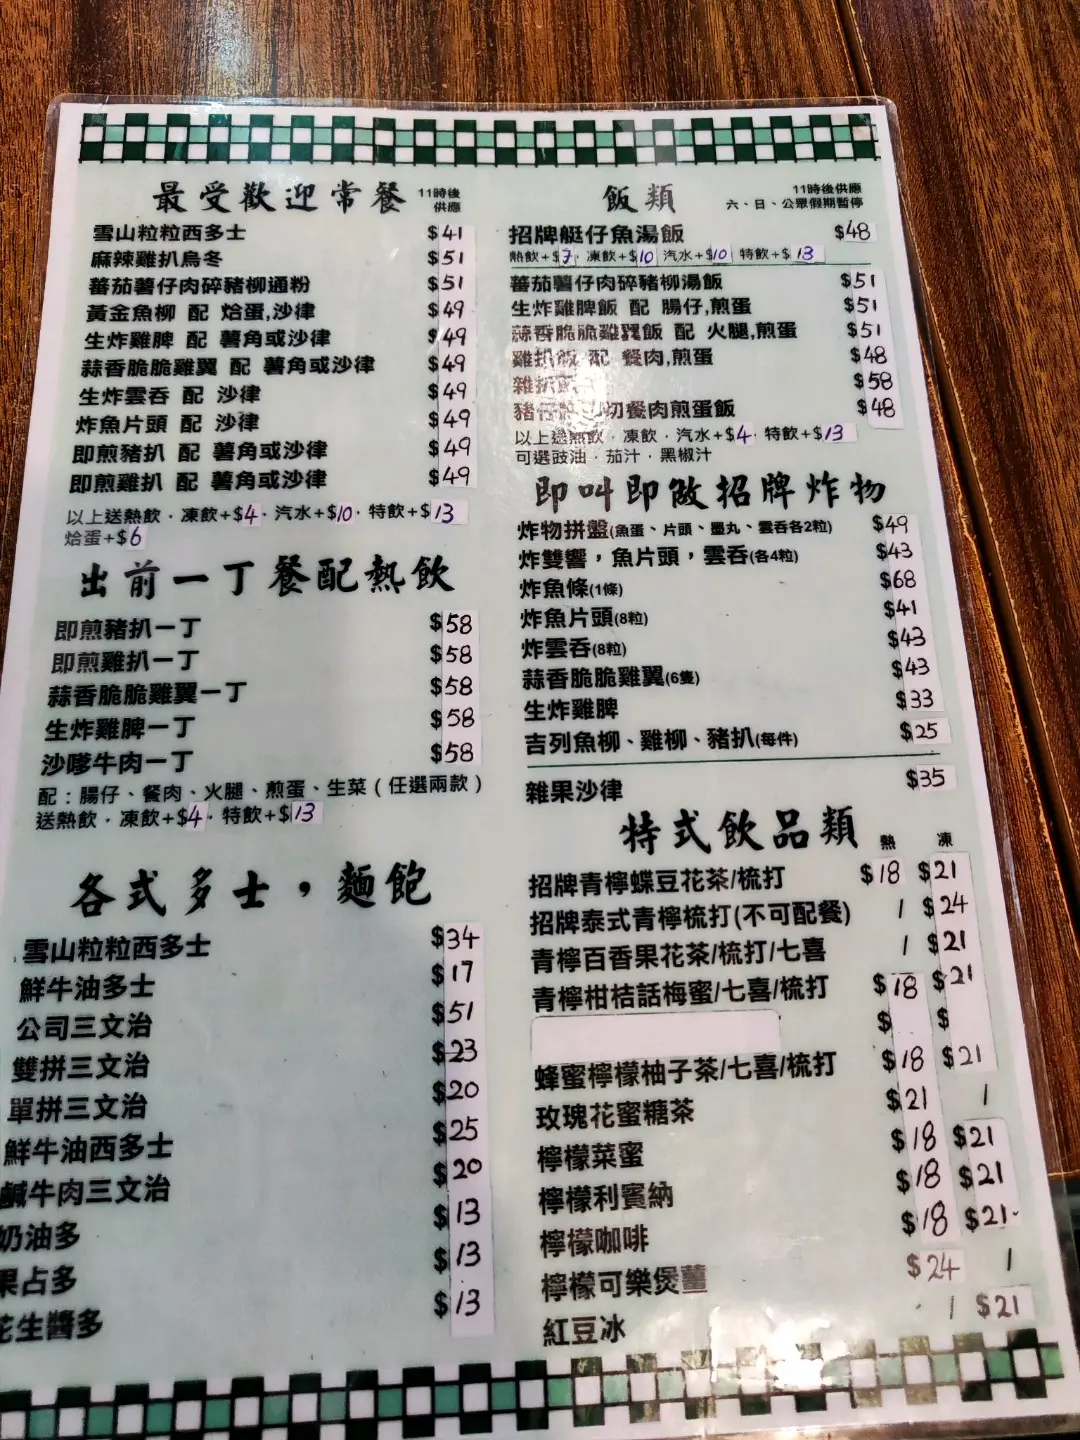 最受歡迎常餐 11時後供應
雪山粒粒西多士 $41
麻辣雞扒烏冬 $51
蕃茄薯仔肉碎豬柳通粉 $51
黃金魚柳 配 烚蛋,沙律 $49
生炸雞脾 配 薯角或沙律 $49
蒜香脆脆雞翼 配 薯角或沙律 $49
生炸雲吞 配 沙律 $49
炸魚片頭 配 沙律 $49
即煎豬扒 配 薯角或沙律 $49
即煎雞扒 配 薯角或沙律 $49
以上送熱飲．凍飲+$4．汽水+$10．特飲+$13
烚蛋+$6
出前一丁餐配熱飲
即煎豬扒一丁 $58
即煎雞扒一丁 $58
蒜香脆脆雞翼一丁 $58
生炸雞脾一丁 $58
沙嗲牛肉一丁 $58
配：腸仔、餐肉、火腿、煎蛋、生菜（任選兩款）
送熱飲．凍飲+$4．特飲+$13
各式多士，麵飽
雪山粒粒西多士 $34
鮮牛油多士 $17
公司三文治 $51
雙拼三文治 $23
單拼三文治 $20
鮮牛油西多士 $25
鹹牛肉三文治 $20
奶油多 $13
果占多 $13
花生醬多 $13
飯類
11時後供應
六、日、公眾假期暫停
招牌艇仔魚湯飯 $48
熱飲+$7，凍飲+$10 汽水+$10 特飲+$13
蕃茄薯仔肉碎豬柳湯飯 $51
生炸雞脾飯 配 腸仔,煎蛋 $51
蒜香脆脆雞翼飯 配 火腿,煎蛋 $51
雞扒飯 配 餐肉,煎蛋 $48
雜扒飯 $58
豬仔 切餐肉煎蛋飯 $48
以上送熱飲．凍飲．汽水+$4．特飲+$13
可選豉油．茄汁．黑椒汁
即叫即做招牌炸物
炸物拼盤(魚蛋、片頭、墨丸、雲吞各2粒) $49
炸雙響，魚片頭，雲吞(各4粒) $43
炸魚條(1條) $68
炸魚片頭(8粒) $41
炸雲吞(8粒) $43
蒜香脆脆雞翼(6隻) $43
生炸雞脾 $33
吉列魚柳、雞柳、豬扒(每件) $25
雜果沙律 $35
特式飲品類 熱 凍
招牌青檸蝶豆花茶/梳打 $18 $21
招牌泰式青檸梳打(不可配餐) / $24
青檸百香果花茶/梳打/七喜 / $21
青檸柑桔話梅蜜/七喜/梳打 $18 $21
$ $
蜂蜜檸檬柚子茶/七喜/梳打 $18 $21
玫瑰花蜜糖茶 $21 /
檸檬菜蜜 $18 $21
檸檬利賓納 $18 $21
檸檬咖啡 $18 $21
檸檬可樂煲薑 $24 /
紅豆冰 / $21